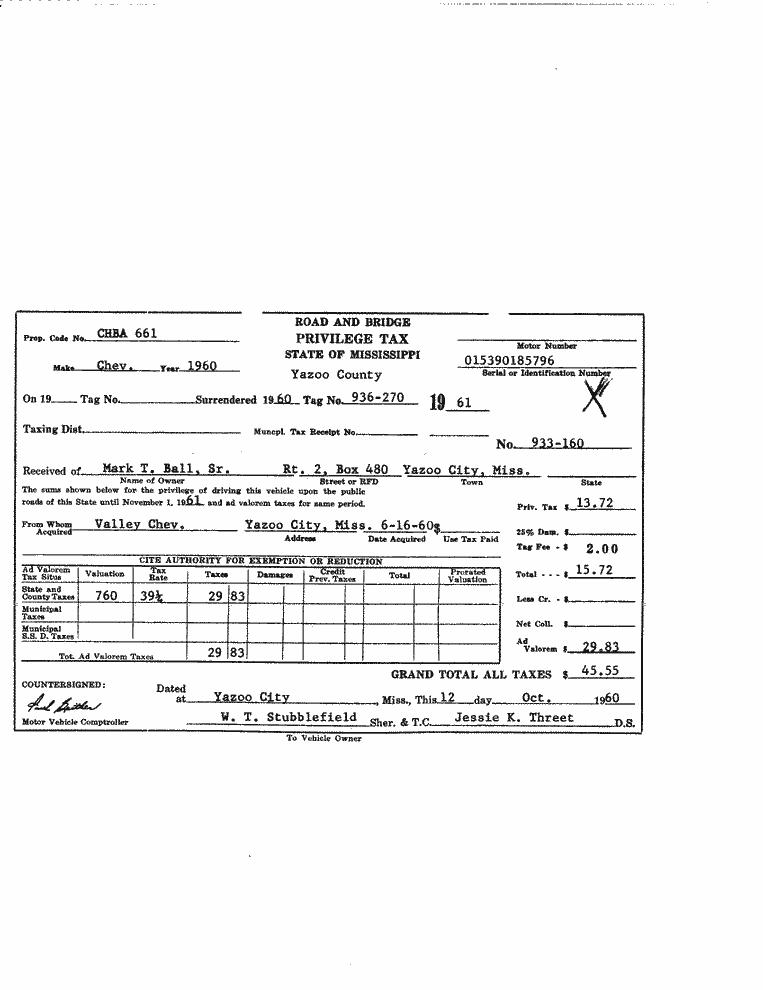 ROAD AND BRIDGE
PRIVILEGE TAX
STATE OF MISSISSIPPI
Yazoo County
Prop. Code No. CHBA 661
Make Chev. Year 1960
Motor Number
015390185796
Serial or Identification Number
On 19 Tag No. Surrendered 1960 Tag No. 936-270 19 61
X
Taxing Dist. Muncpl. Tax Receipt No.
No. 933-160
Received of Mark T. Ball, Sr. Rt. 2, Box 480 Yazoo City, Miss.
Name of Owner Street or RFD Town State
The sums shown below for the privilege of driving this vehicle upon the public
roads of this State until November 1, 1961 and ad valorem taxes for same period.
Priv. Tax $ 13.72
From Whom Acquired Valley Chev. Yazoo City, Miss. 6-16-60 $
Address Date Acquired Use Tax Paid
25% Dam. $
Tag Fee - $ 2.00
CITE AUTHORITY FOR EXEMPTION OR REDUCTION
Ad Valorem Tax Situs Valuation Tax Rate Taxes Damages Credit Prev. Taxes Total Prorated Valuation
Total - - - $ 15.72
State and County Taxes 760 39¼ 29 83
Less Cr. - $
Municipal Taxes
Net Coll. $
Municipal S.S. D. Taxes
Ad Valorem $ 29.83
Tot. Ad Valorem Taxes 29 83
GRAND TOTAL ALL TAXES $ 45.55
COUNTERSIGNED:
Dated at Yazoo City, Miss., This 12 day Oct. 1960
Motor Vehicle Comptroller
W. T. Stubblefield Sher. & T.C. Jessie K. Threet D.S.
To Vehicle Owner